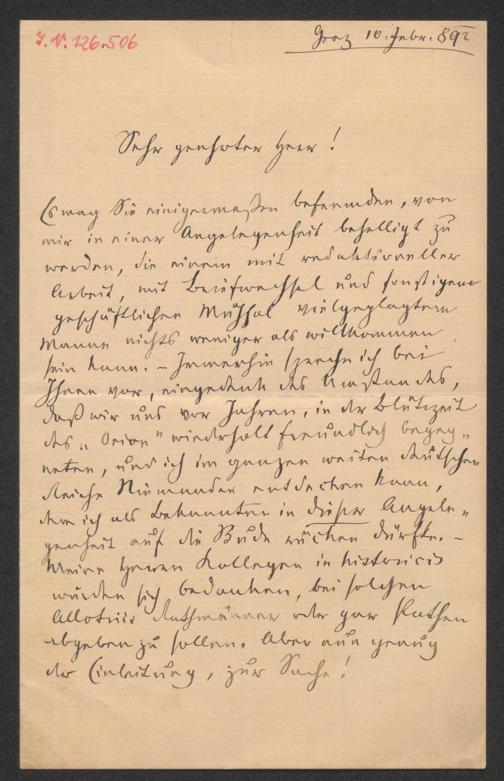 J. N. 126.506
Graz 10. Febr. 892
Sehr geehrter Herr!
Es mag Sie einigermaßen befremden, von
mir in einer Angelegenheit behelligt zu
werden, die einem mit redaktioneller
Arbeit, mit Briefwechsel und sonstigem
geschäftlichen Mühsal vielgeplagtem
Manne nichts weniger als willkommen
sein kann. – Immerhin spreche ich bei
Ihnen vor, eingedenk des Umstandes,
daß wir uns vor Jahren, in der Blütezeit
des „Orion" wiederholt freundlich begeg„
neten, und ich im ganzen weiten deutschen
Reiche Niemanden entdecken kann,
dem ich als Bekannten in dieser Angele„
genheit auf die Bude rücken dürfte. –
Meine Herren Kollegen in historicis
würden sich bedanken, bei solchen
Allotriis Rathmänner oder gar Pathen
abgeben zu sollen. Aber nun genug
der Einleitung, zur Sache!